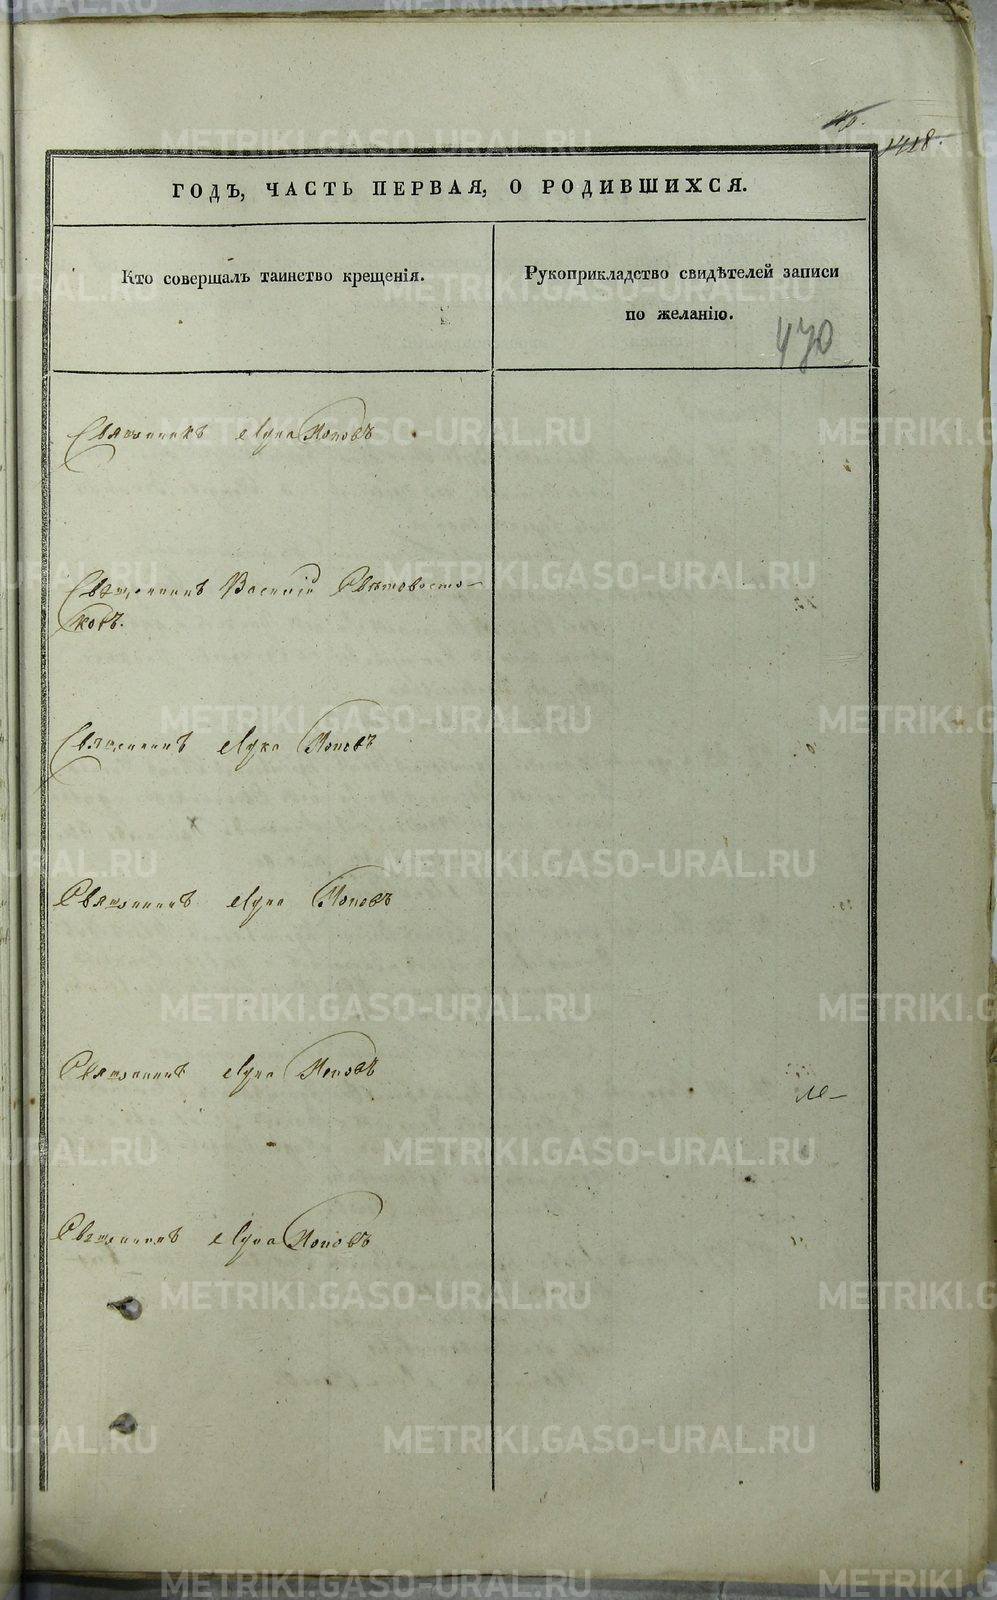 1418.
ГОДЪ, ЧАСТЬ ПЕРВАЯ, О РОДИВШИХСЯ.
Кто совершалъ таинство крещенія.
Рукоприкладство свидѣтелей записи
по желанію.
470
Священникъ Лука Поповъ
Священникъ Василій Свѣтовосто-
ковъ.
Священникъ Лука Поповъ
Священникъ Лука Поповъ
Священникъ Лука Поповъ
Священникъ Лука Поповъ
METRIKI.GASO-URAL.RU